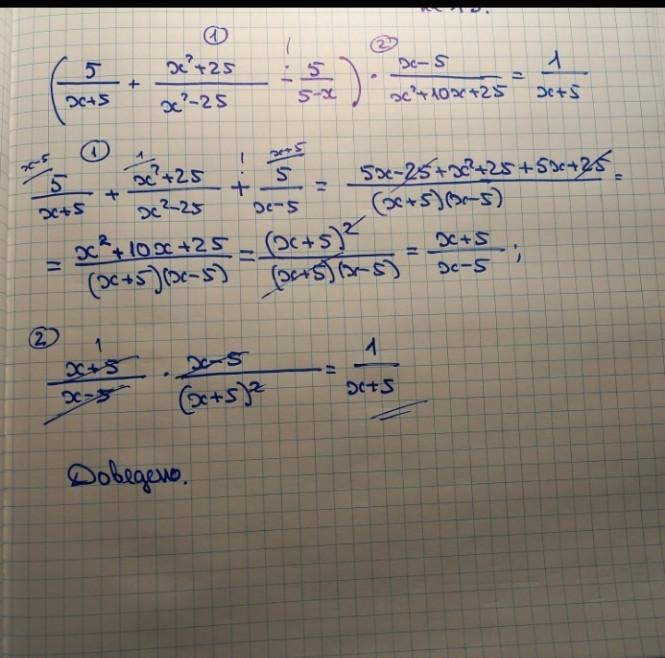 ① ②
(5/(x+5) + (x²+25)/(x²-25) - 5/(5-x)) · (x-5)/(x²+10x+25) = 1/(x+5)
① 5/(x+5) + (x²+25)/(x²-25) + 5/(x-5) = (5x-25+x²+25+5x+25)/((x+5)(x-5)) =
= (x²+10x+25)/((x+5)(x-5)) = (x+5)²/((x+5)(x-5)) = (x+5)/(x-5) ;
② (x+5)/(x-5) · (x-5)/(x+5)² = 1/(x+5)
Доведено.